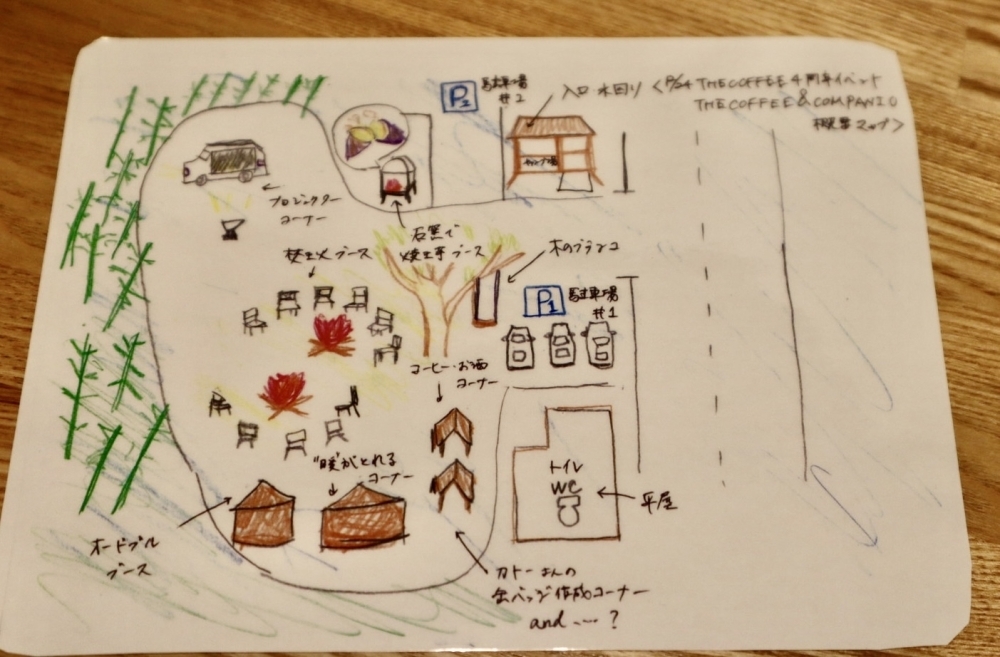 P2
駐車場
#2
入口・水回り
<12/24 THE COFFEE 4周年イベント
THE COFFEE & COMPANIO
概要マップ>
キャンプ場
プロジェクター
コーナー
石窯で
焼き芋ブース
焚き火ブース
木のブランコ
P1
駐車場
#1
コーヒー・お酒
コーナー
"暖"がとれる
コーナー
トイレ
WC
平屋
オードブル
ブース
カトーさんの
缶バッジ作成コーナー
and ---- ?